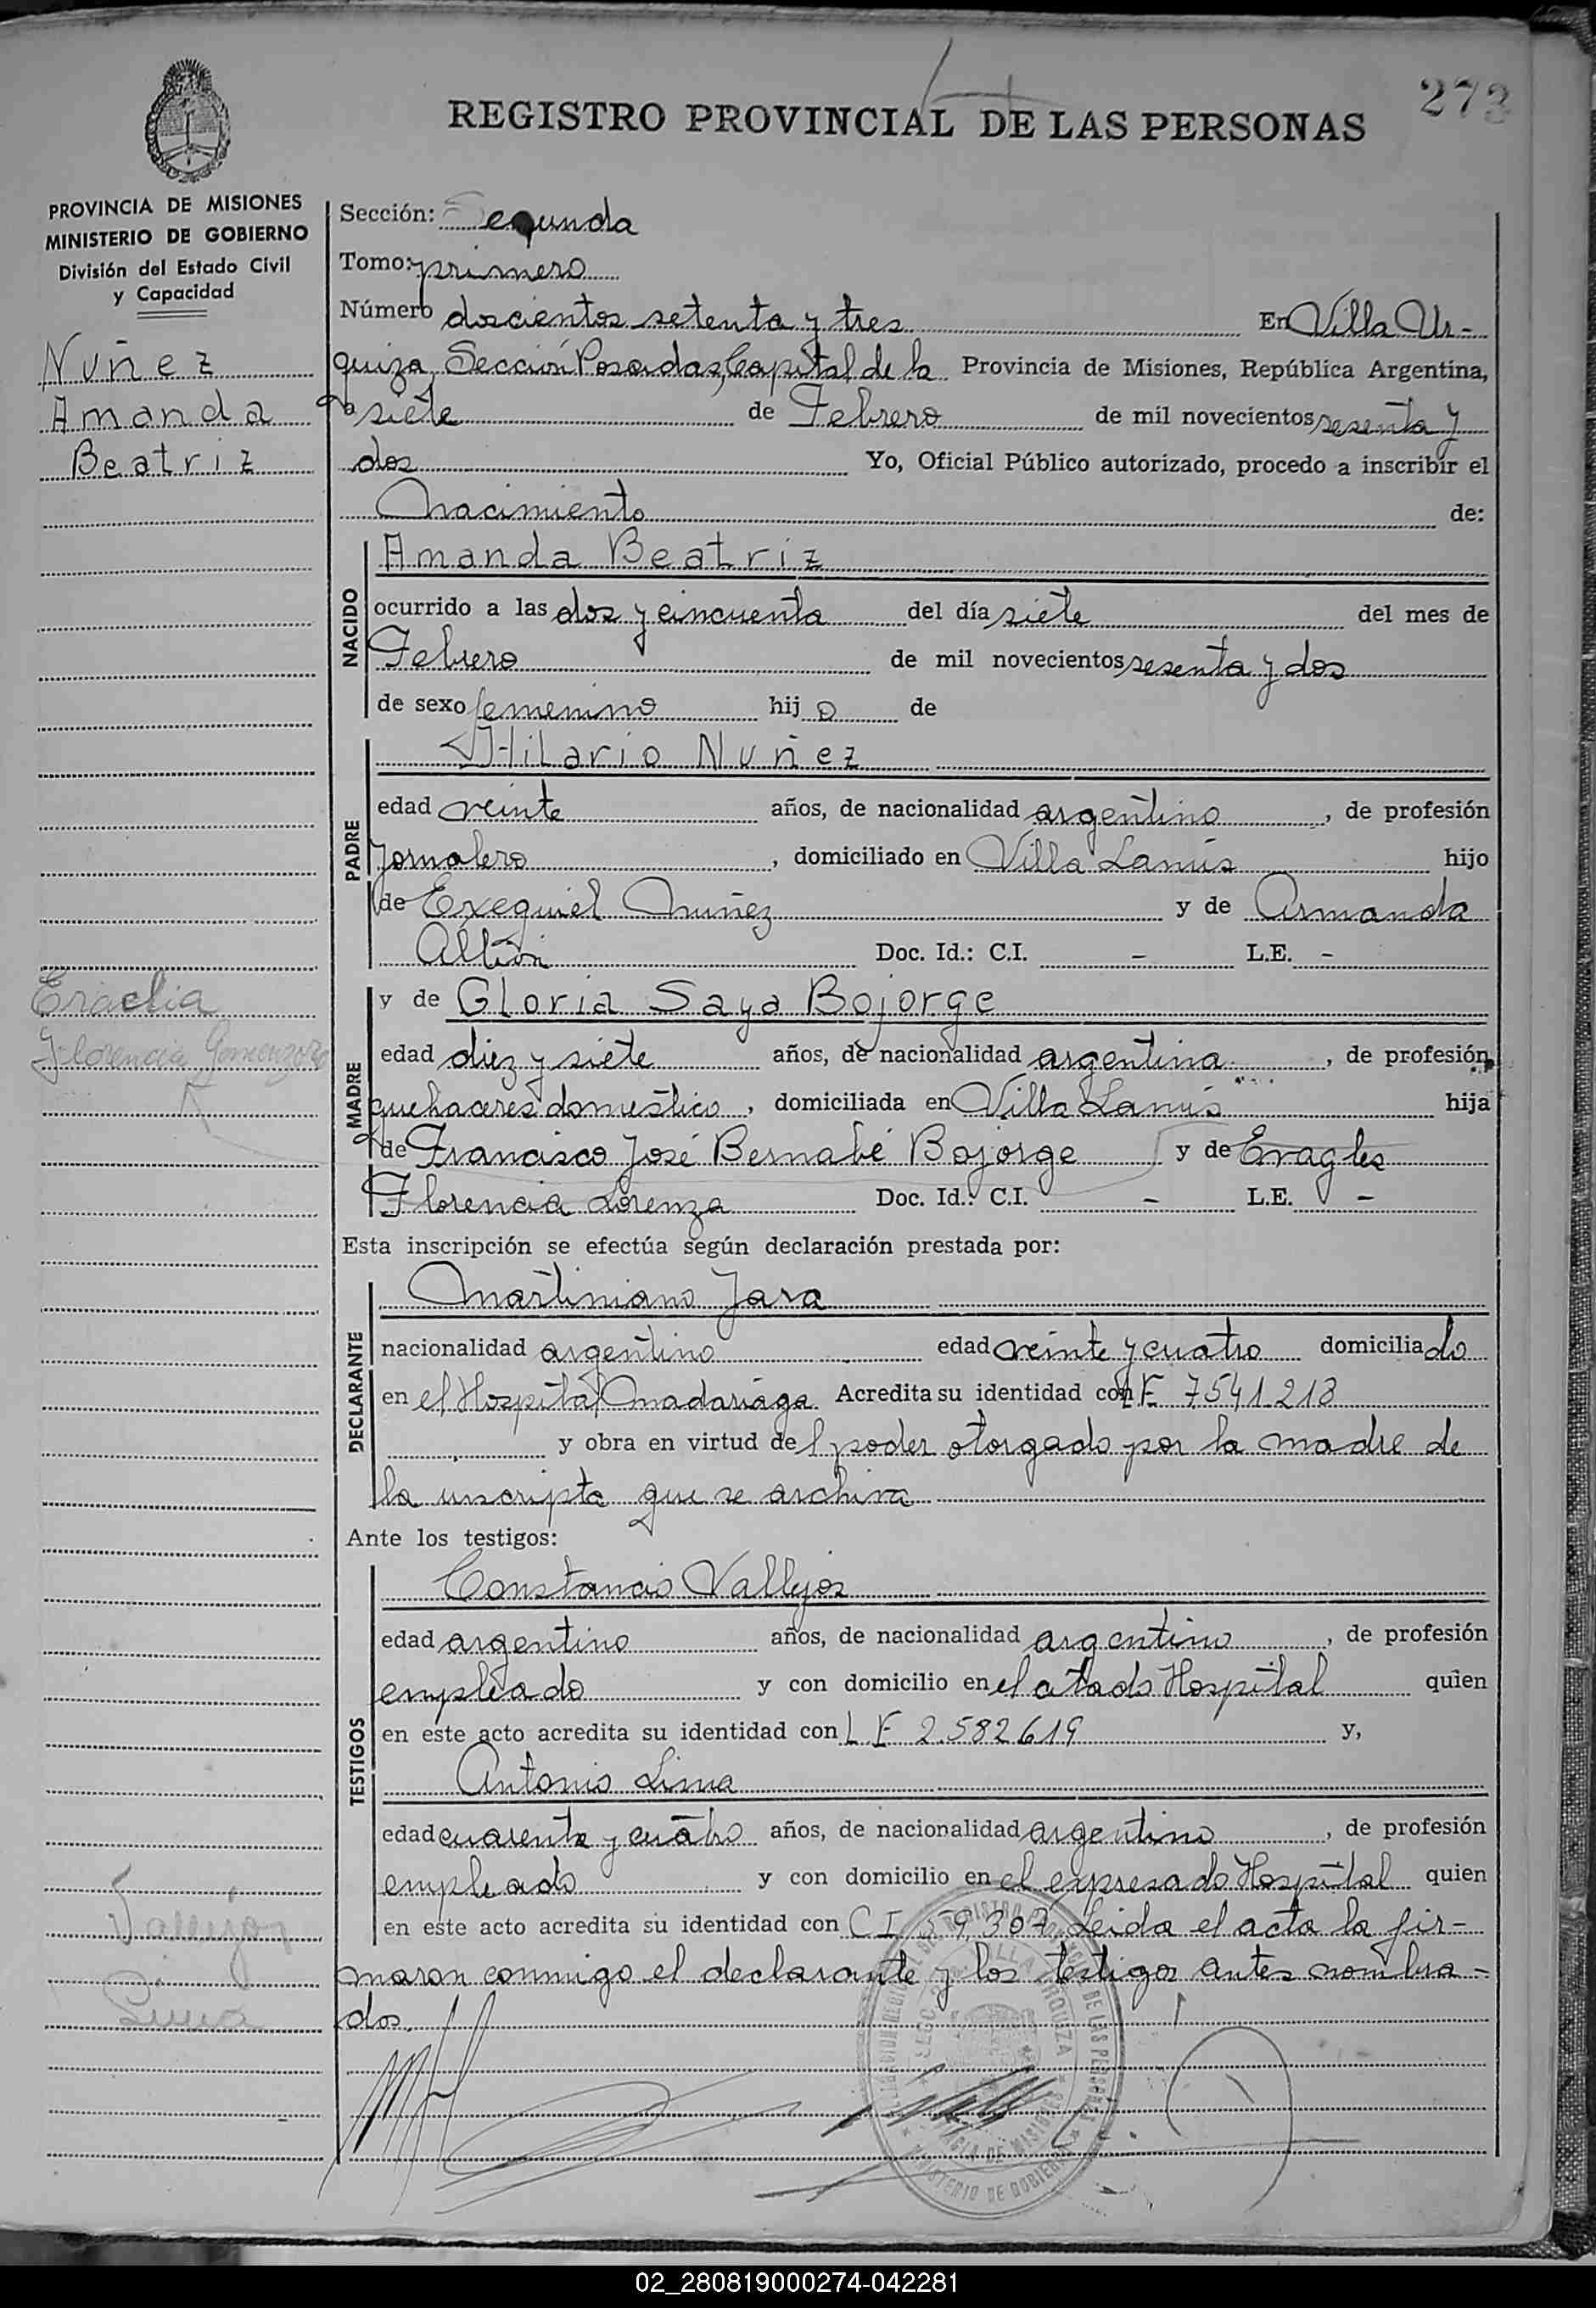 273
REGISTRO PROVINCIAL DE LAS PERSONAS
PROVINCIA DE MISIONES
MINISTERIO DE GOBIERNO
División del Estado Civil
y Capacidad
Nuñez
Amanda
Beatriz
Eraclia
Florencia
Vallejos
Lima
Sección: Segunda
Tomo: primero
Número doscientos setenta y tres En Villa Ur-
quiza, Sección Posadas, Capital de la Provincia de Misiones, República Argentina,
a siete de Febrero de mil novecientos sesenta y
dos Yo, Oficial Público autorizado, procedo a inscribir el
Nacimiento de:
NACIDO
Amanda Beatriz
ocurrido a las dos y cincuenta del día siete del mes de
Febrero de mil novecientos sesenta y dos
de sexo femenino hij a de
PADRE
Hilario Nuñez
edad veinte años, de nacionalidad argentino, de profesión
Jornalero, domiciliado en Villa Lanús hijo
de Exequiel Nuñez y de Armanda
Doc. Id.: C.I. - L.E. -
MADRE
y de Gloria Saya Bojorge
edad diez y siete años, de nacionalidad argentina, de profesión
quehaceres domestico, domiciliada en Villa Lanús hija
de Francisco José Bernabé Bojorge y de Eragles
Florencia Lorenza Doc. Id.: C.I. - L.E. -
Esta inscripción se efectúa según declaración prestada por:
DECLARANTE
Martiniano Jara
nacionalidad argentino edad veinte y cuatro domiciliado
en el Hospital Madariaga. Acredita su identidad con L E 7541.213
y obra en virtud del poder otorgado por la madre de
la inscripta que se archiva
Ante los testigos:
TESTIGOS
Constancio Vallejos
edad argentino años, de nacionalidad argentino, de profesión
empleado y con domicilio en el citado Hospital quien
en este acto acredita su identidad con L E 2.582.619 y,
Antonio Lima
edad cuarenta y cuatro años, de nacionalidad argentino, de profesión
empleado y con domicilio en el expresado Hospital quien
en este acto acredita su identidad con C I 59.307 Leida el acta la fir-
maron conmigo el declarante y los testigos antes nombra-
dos.
02_280819000274-042281